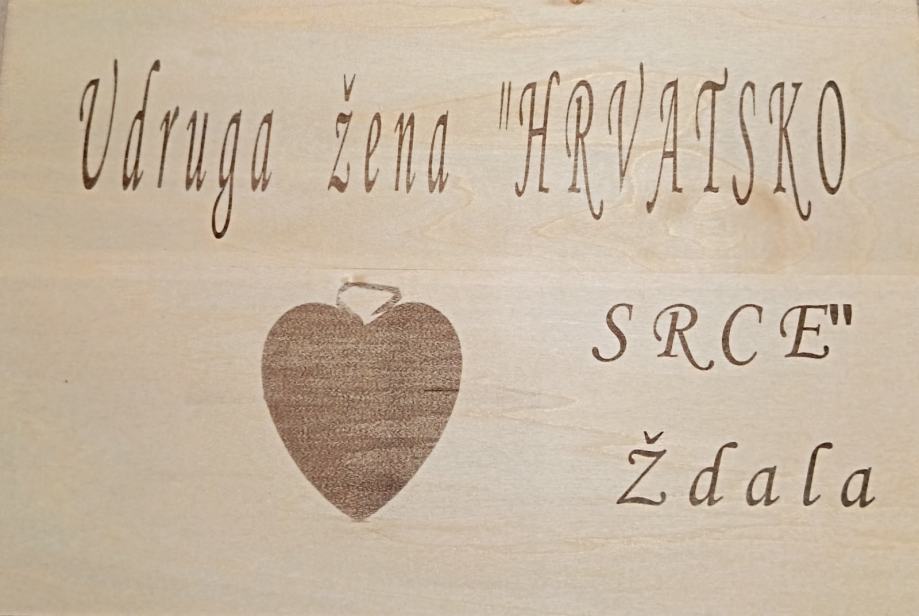 Udruga žena "HRVATSKO
SRCE"
Ždala